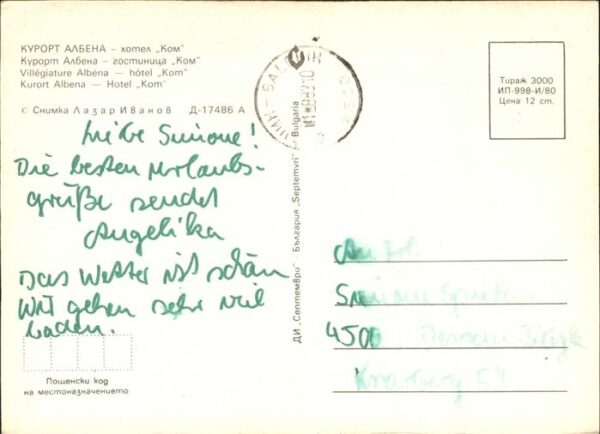 КУРОРТ АЛБЕНА – хотел „Ком"
Курорт Албена – гостиница „Ком"
Villégiature Albéna — hôtel „Kom"
Kurort Albena — Hotel „Kom"
с Снимка Лазар Иванов Д-17486 А
Liebe Simone!
Die besten Urlaubs-
grüße sendet
Angelika
Das Wetter ist schön
Wir gehen sehr viel
baden.
Пощенски код
на местоназначението
ДИ „Септември" – България „Septemvri" – Bulgaria
Тираж 3000
ИП-998-И/80
Цена 12 ст.
Simone
4500